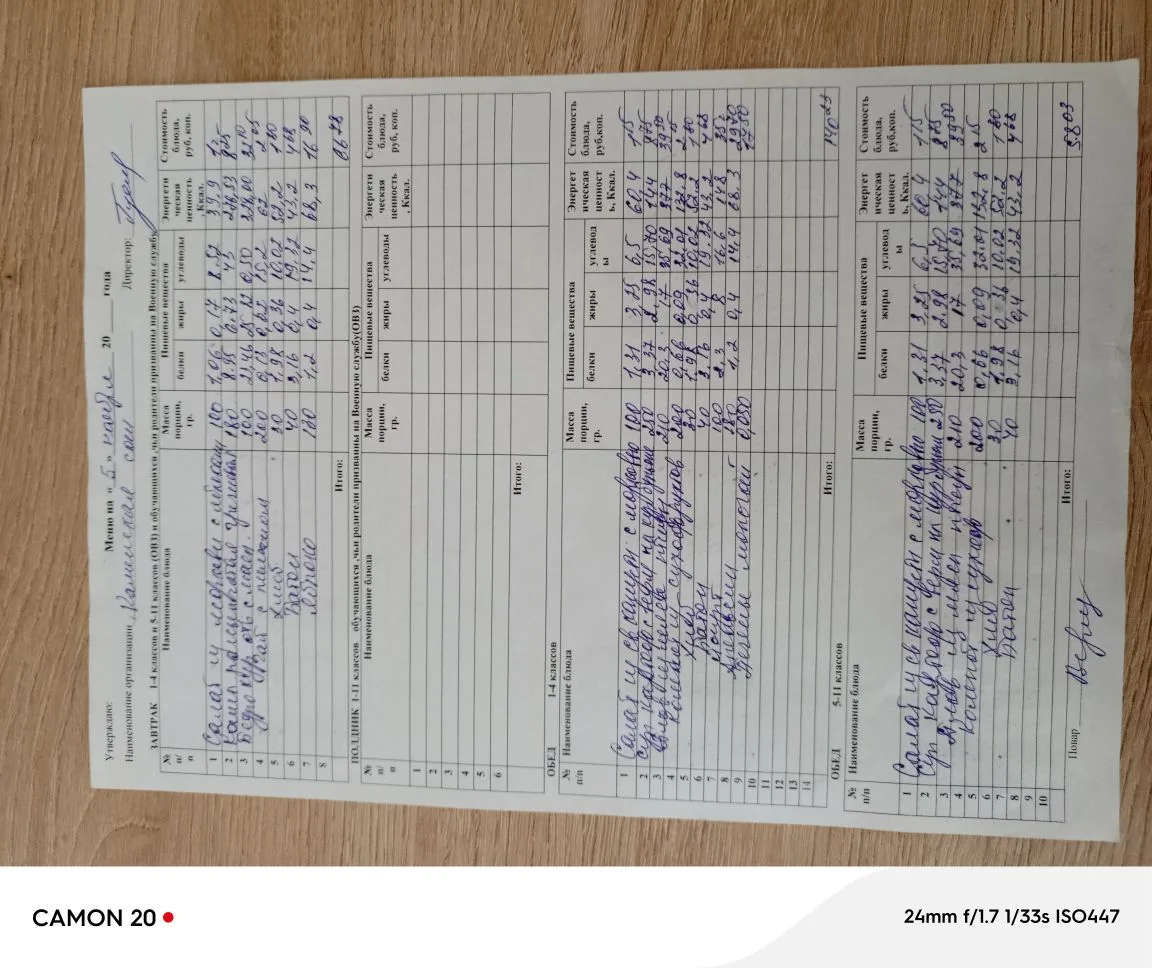 Утверждаю: Меню на «5» ноября 20 года
Наименование организации Каменская сош Директор:
ЗАВТРАК 1-4 классов и 5-11 классов (ОВЗ) и обучающихся ,чьи родители призванны на Военную службу
№ п/п Наименование блюда Масса порции, гр. Пищевые вещества белки жиры углеводы Энергетическая ценность, Ккал. Стоимость блюда, руб, коп.
1 Салат из моркови с 100 1,06 0,17 8.52 39,9
2 Каша рассыпчатая гречневая 180 8.95 6.73 43
3 100
4 Чай с лимоном 200 0,13 0,02 15.2 62 2 05
5 Хлеб 30 1,98 0,36 10.02 52,2 1 80
6 Батон 40 3,16 0,4 19,32 43,2 4 68
7 Яблоко 1,2 0,4 14,4 68,3 16 90
8
Итого: 86 78
ПОЛДНИК 1-11 классов обучающихся ,чьи родители призванны на Военную службу(ОВЗ)
№ п/п Наименование блюда Масса порции, гр. Пищевые вещества белки жиры углеводы Энергетическая ценность, Ккал. Стоимость блюда, руб, коп.
1
2
3
4
5
6
Итого:
ОБЕД 1-4 классов
№ п/п Наименование блюда Масса порции, гр. Пищевые вещества белки жиры углеводы Энергетическая ценность, Ккал. Стоимость блюда, руб,коп.
1 Салат из св капусты с морковью 100 1,31 3,25 6,5 60,4 1 15
2 Суп картоф с 250 3,37 2,98 15,70 144 8 75
3 210 20,3 17 35,69 377 39 50
4 Компот из сухофруктов 200 0,66 0,09 32,01 132,8 2 15
5 Хлеб 30 1,98 0,36 10,02 52.2 1 80
6 Батон 40 3,16 0,4 19,32 43,2 4 68
7 100 148
8 Апельсин 180 1,2 0,4 14.4 68.3 29 70
9 0,050 17 50
10
11
12
13
14
Итого: 140 23
ОБЕД 5-11 классов
№ п/п Наименование блюда Масса порции, гр. Пищевые вещества белки жиры углеводы Энергетическая ценность, Ккал. Стоимость блюда, руб,коп.
1 Салат из св капусты с морковью 100 1,31 3,25 6,5 60,4 1 15
2 Суп картоф с 250 3,37 2,98 15,70 144 8 75
3 Плов из мяса птицы 210 20,3 17 35,69 377 39 50
4 Компот из сухофр 200 0,66 0,09 32.01 132.8 2 15
5 Хлеб 30 1,98 0,36 10.02 52.2 1 80
6 Батон 40 3,16 0,4 19.32 43,2 4 68
7
8
9
10
Итого: 58 03
Повар
CAMON 20
24mm f/1.7 1/33s ISO447